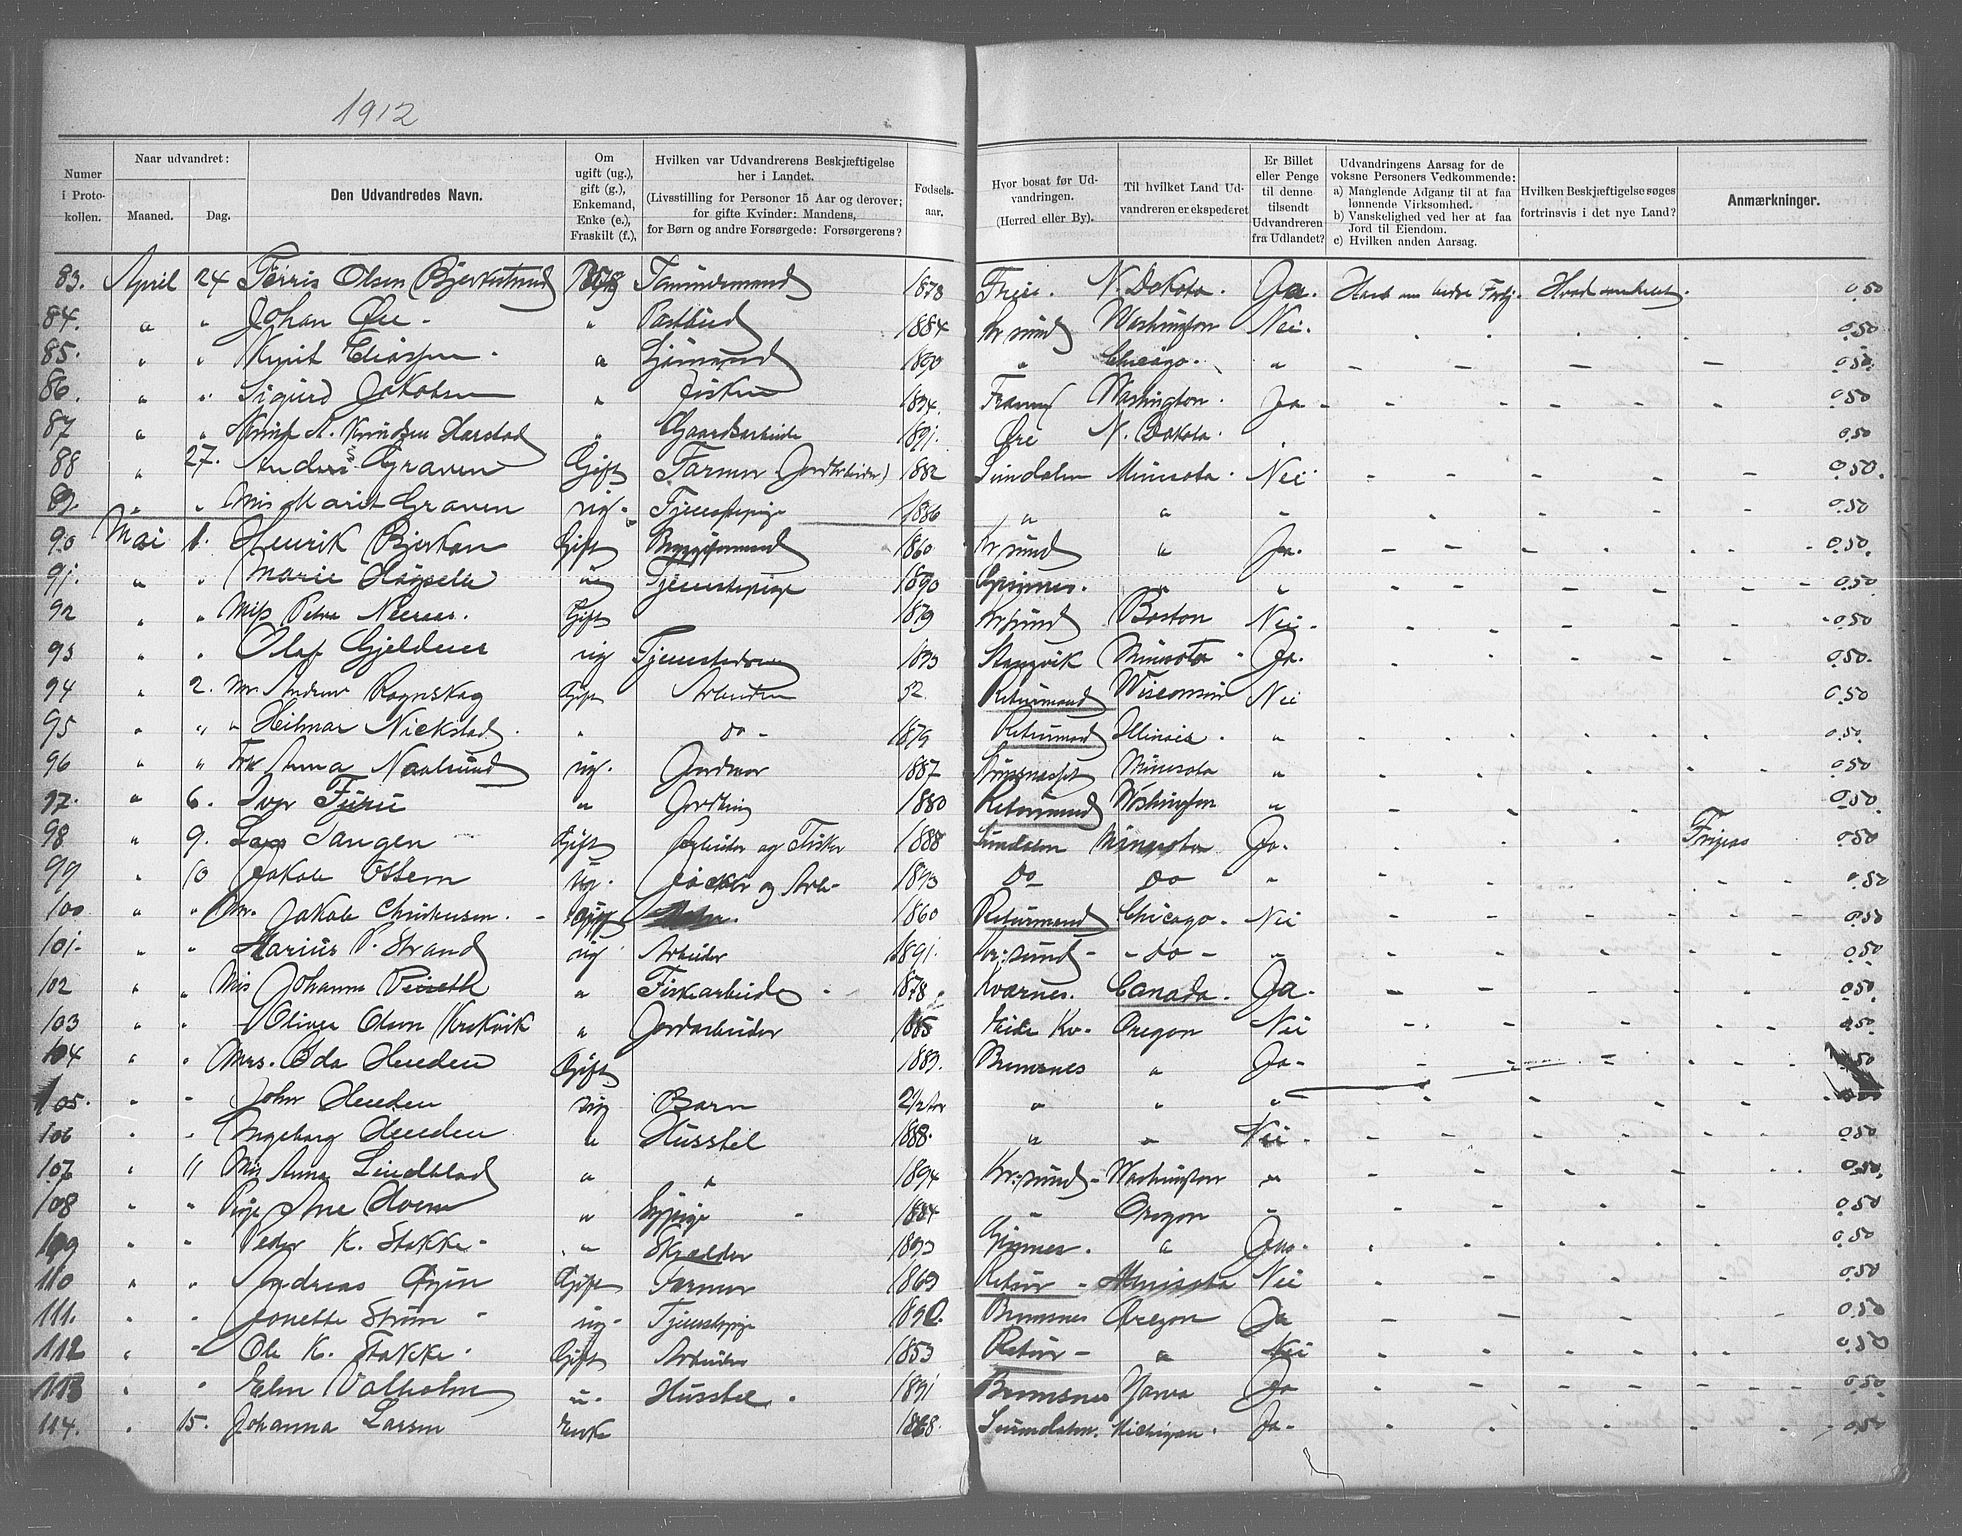 1912
Numer i Proto-kollen. Naar udvandret: Maaned. Dag. Den Udvandredes Navn. Om ugift (ug.), gift (g.), Enkemand, Enke (e.), Fraskilt (f.), Hvilken var Udvandrerens Beskjæftigelse her i Landet. (Livsstilling for Personer 15 Aar og derover; for gifte Kvinder: Mandens, for Børn og andre Forsørgede: Forsørgerens? Fødsels-aar. Hvor bosat før Ud-vandringen. (Herred eller By). Til hvilket Land Ud-vandreren er ekspederet Er Billet eller Penge til denne tilsendt Udvandreren fra Udlandet? Udvandringens Aarsag for de voksne Personers Vedkommende: a) Manglende Adgang til at faa lønnende Virksomhed. b) Vanskelighed ved her at faa Jord til Eiendom. c) Hvilken anden Aarsag. Hvilken Beskjæftigelse søges fortrinsvis i det nye Land? Anmærkninger.
83. April 24 Olsen 1878 Frei. N. Dakota. Ja. 0.50
84. " " Johan Øie - " Postbud 1884 Kr sund Washington Nei. 0.50
85. " " Knut Eliassen. " Sjømand 1890 " Chicago. " 0.50
86. " " Sigurd Jakobsen " Fisker 1894. Washington. Ja - 0.50
87 " " Knut A. Knudsen Harstad " Gaardsarbeide 1891. Øre N. Dakota. 0.50
88 " 27. Anders Graven Gift Farmer (Jordarbeider) 1882 Sundalen Minesota. Nei 0.50.
89. " " Mis Marit Graven ug. Tjenestepige 1886 " " " 0.50
90 Mai 1. Henrik Bjerkan Gift 1860 Kr sund " Ja. 0.50.
91. " " Marie ug Tjenestepige 1890 " " 0.50
92 " " Miss Petra Gift 1879 Kr sund Boston Nei. 0.50
93 " " Olaf Gjeldnes ug 1893 Stangvik Minesota Ja. 0.50.
94 " 2. Mr. Andrew Rognskog Gift Arbeider 52. Returmand Wisconsin Nei 0.50
95 " " " Heitmar Nickstad. " do - 1879 Returmand Illinois. " 0.50.
96 " " Frk Anna Naalsund ug. 1887 Minesota " 0.50
97. " 6. Iver Furu " 1880 Returmand Washington " 0.50.
98 " 9. Lars Tangen Gift Arbeider og Fisker 1888 Sundalen Minesota Ja. 0.50
99 " 10 Jakob Ottem ug. og Arb- 1893 Do do " 0.50
100 " " Mr. Jakob Christensen. Gift 1860 Returmand Chicago. Nei 0.50
101. " " Marius P. Strand ug Arbeider 1891. Kr:sund - - do - " 0.50
102 " " Mis Johanna " Fiskearbeide 1878. Kvernes. Canada. Ja. 0.50
103 " " Oliver Olsen Krekvik " Jordarbeider 1885 Oregon Nei 0.50
104 " " Mrs. Ida Henden Gift 1889. Bremsnes " Ja- 0.50
105. " " John Henden ug Barn 2 1/2 Aar " " "
106 " " Ingeborg Henden " Husstel 1888. " " Nei - 0.50
107 " 11 Mis Anna Lindblad " " 1894 Kr:sund - Washington " 0.50.
108 " " Pige Ane Hoem " Sypige 1884 " Oregon " 0.50
109 " " Peder K. Stokke - " Skrædder 1893 " 0.50
110 " " Andreas Øyen Gift Farmer 1869 Retur - Minisota Nei 0.50
111. " " Jonette Strøm ug- Tjenestepige 1890. Bremsnes Oregon Ja 0.50
112 " " Ole K. Stokke. Gift Arbeider 1853 Retur - " Nei 0.50
113 " " Elen Valholm u. Husstel. 1891 Bremsnes Ja 0.50
114. " 15. Johanna Larsen Enke 1868. Sundalen. Michigan. Ja. 0.50